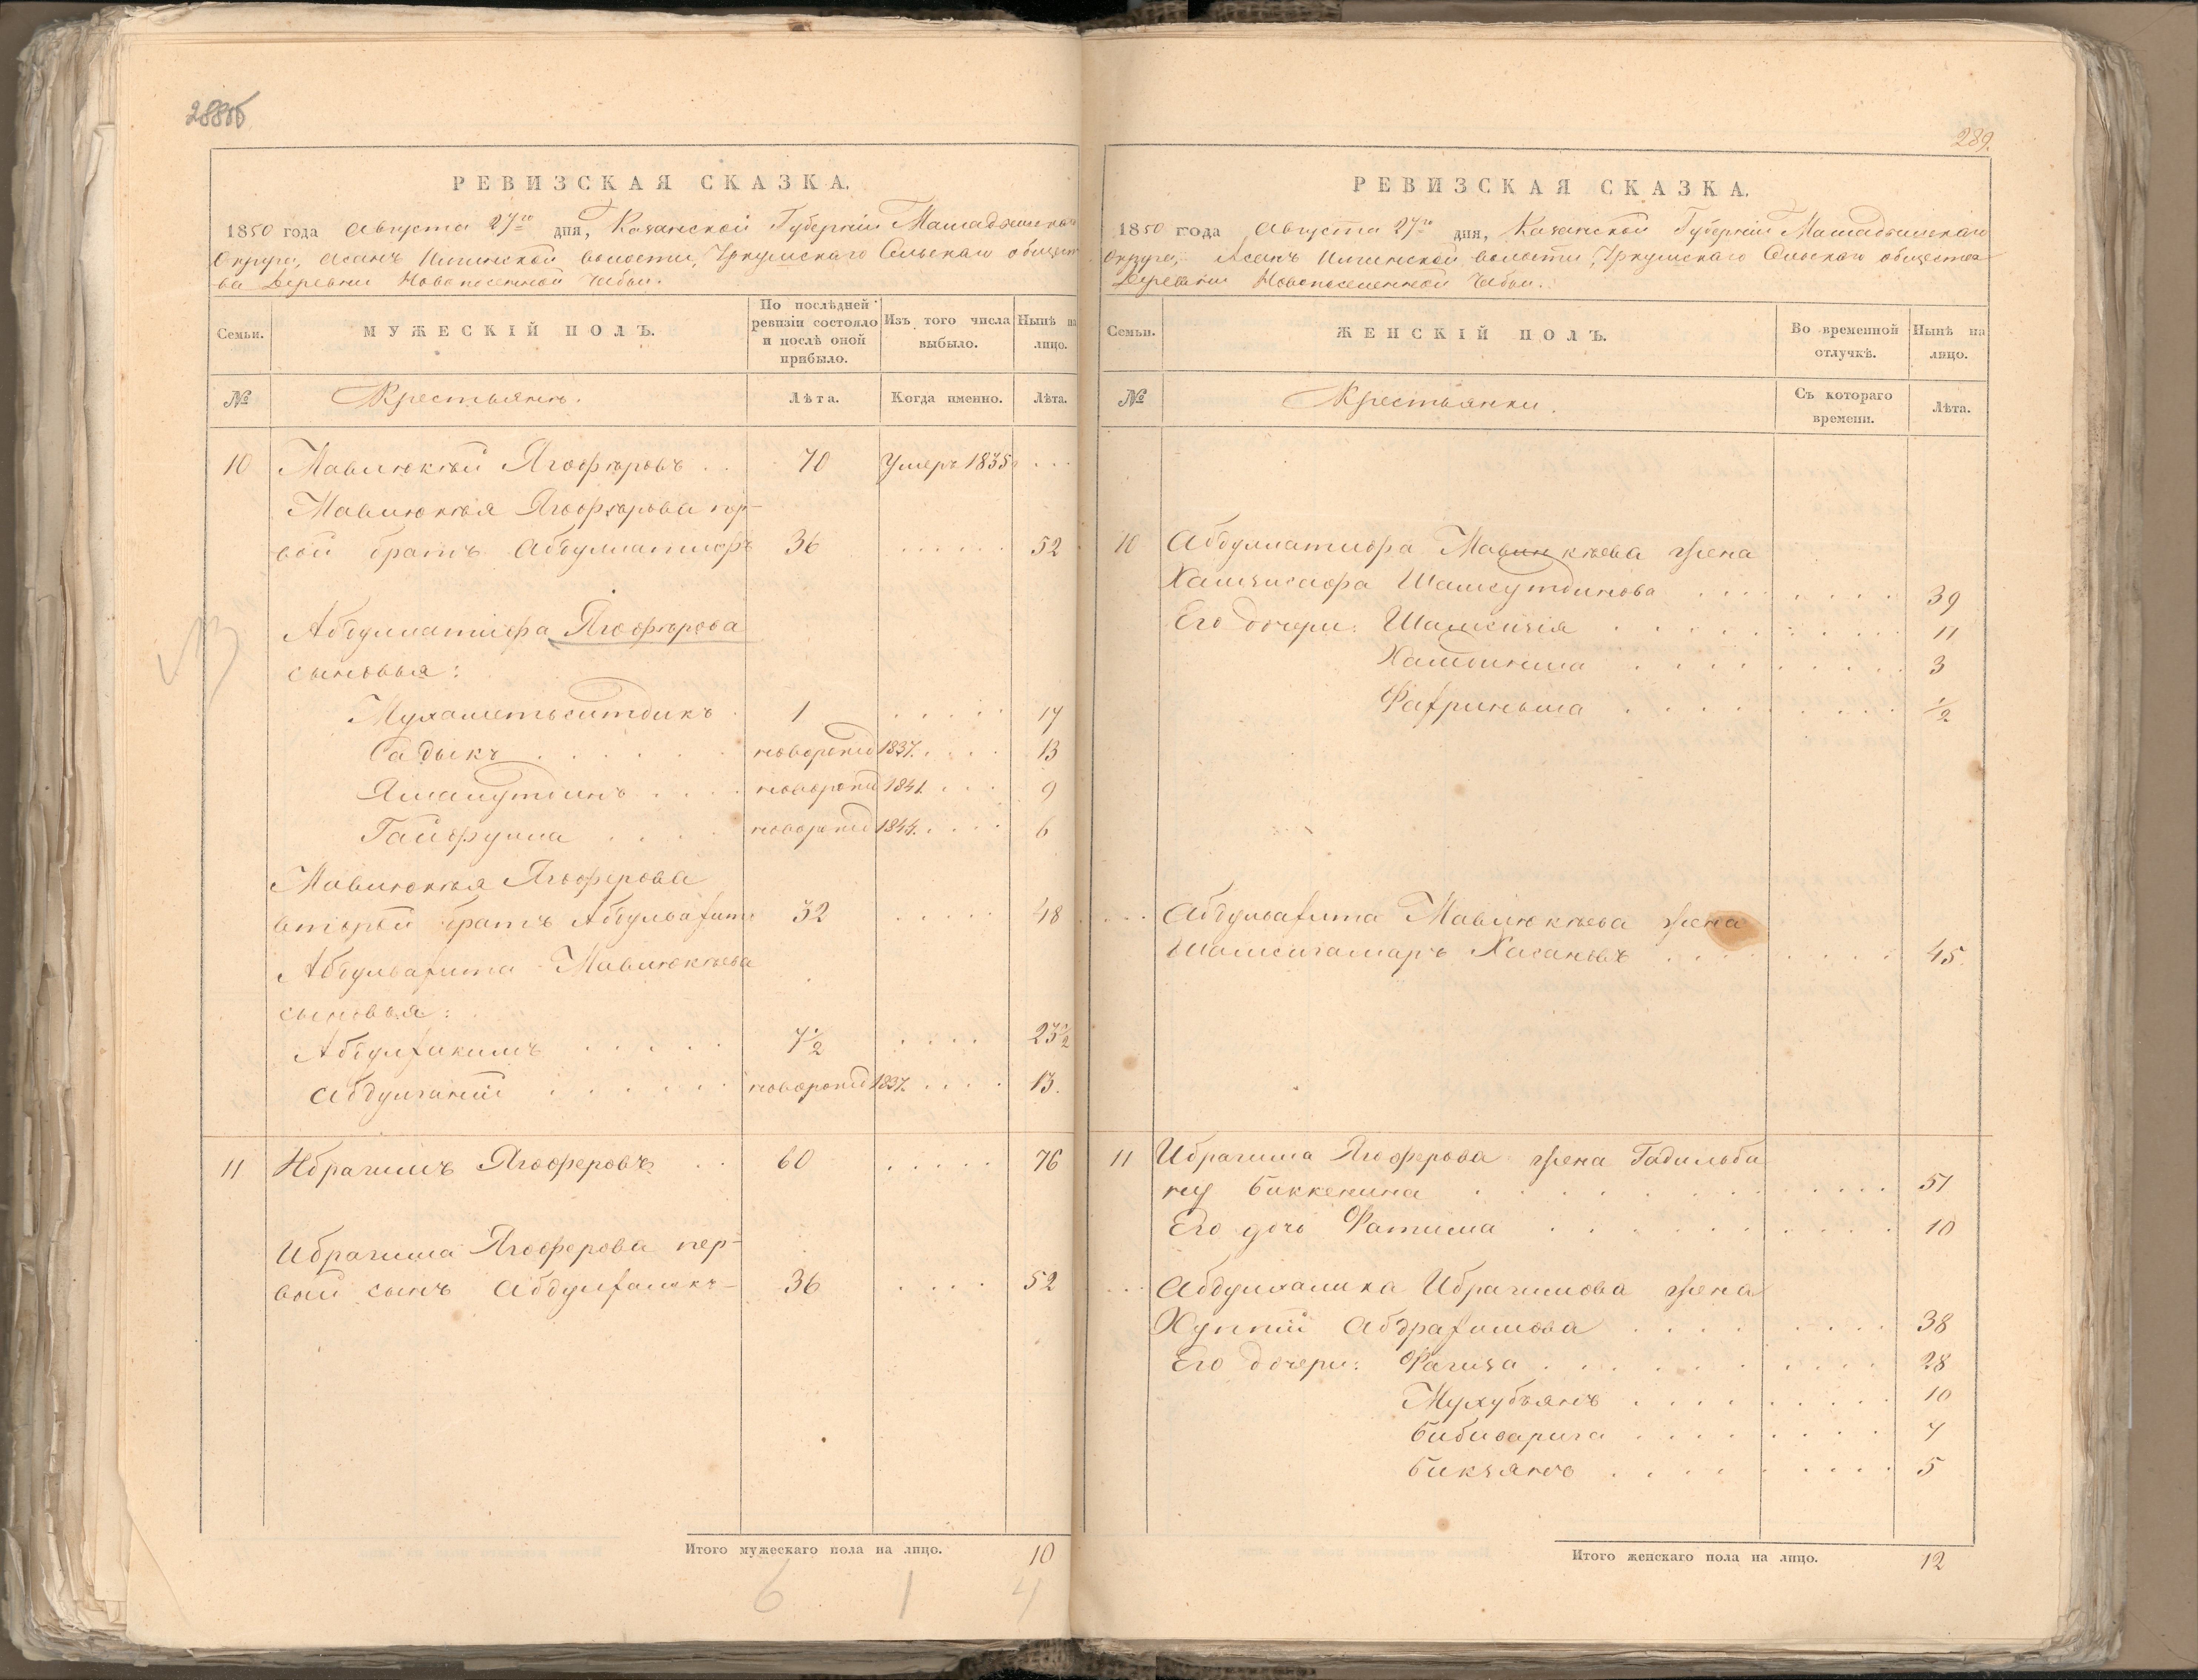 288об
РЕВИЗСКАЯ СКАЗКА.
1850 года Августа 27го дня, Казанской Губерніи Мамадышскаго
Округа, Асанъ Илгинской волости, Уркушскаго Сельскаго общест
ва Деревни Новопоселенной Чабьи.
Семьи.
МУЖЕСКІЙ ПОЛЪ.
По послѣдней ревизіи состояло и послѣ оной прибыло.
Изъ того числа выбыло.
Нынѣ на лицо.
№
Крестьянъ.
Лѣта.
Когда именно.
Лѣта.
10 Мавлюкѣй Ягофѣровъ . . 70 Умеръ 1835 . . .
Мавлюкѣя Ягофѣрова пер-
вой братъ Абдуллатифъ 36 . . . . . . 52
Абдуллатифа Ягофѣрова
сыновья:
Мухаметьситдикъ . 1 . . . . . 17
Садыкъ . . . . . . новорожд 1837. . . . . 13
Ямалутдинъ . . . . новорожд 1841. . . . 9
Гайфулла . . . . новорожд 1844. . . . . 6
Мавлюкѣя Ягоферова
второй братъ Абдулвагитъ 32 . . . . . 48
Абдулвагита Мавлюкѣева
сыновья:
Абдулхакимъ . . . . . 7½ . . . . 23½
Абдулганій . . . . . . новорожд 1837. . . . . 13.
11 Ибрагимъ Ягоферовъ . . 60 . . . . . 76
Ибрагима Ягоферова пер-
вой сынъ Абдулхаликъ 36 . . . . 52
Итого мужескаго пола на лицо. 10
6 1 4
289.
РЕВИЗСКАЯ СКАЗКА.
1850 года Августа 27го дня, Казанской Губерніи Мамадышскаго
Округа, Асанъ Илгинской волости, Уркушскаго Сельскаго общества
Деревни Новопоселенной Чабьи.
Семьи.
ЖЕНСКІЙ ПОЛЪ.
Во временной отлучкѣ.
Нынѣ на лицо.
№
Крестьянки.
Съ котораго времени.
Лѣта.
10 Абдуллатифа Мавлюкѣева жена
Шамсутдинова . . . . . . . . 39
Его дочери: . . . . . . . . . . 11
. . . . . . . . . 3
. . . . . . . . . ½
. . . Абдулвагита Мавлюкѣева жена
Шамсигамаръ Хасановъ . . . . . . . . 45.
11 Ибрагима Ягоферова жена Гадильба
ну Биккенина . . . . . . . . . . . . 51
Его дочь Фатима . . . . . . . . . . 10
. . . Абдулхалика Ибрагимова жена
Абдрахимова . . . . . . . . . 38
Его дочери: Фагиза . . . . . . . . . . 28
Мухубъянъ . . . . . . . . . 10
Бибисарига . . . . . . . . 7
Бикъянъ . . . . . . . . . 5
Итого женскаго пола на лицо. 12